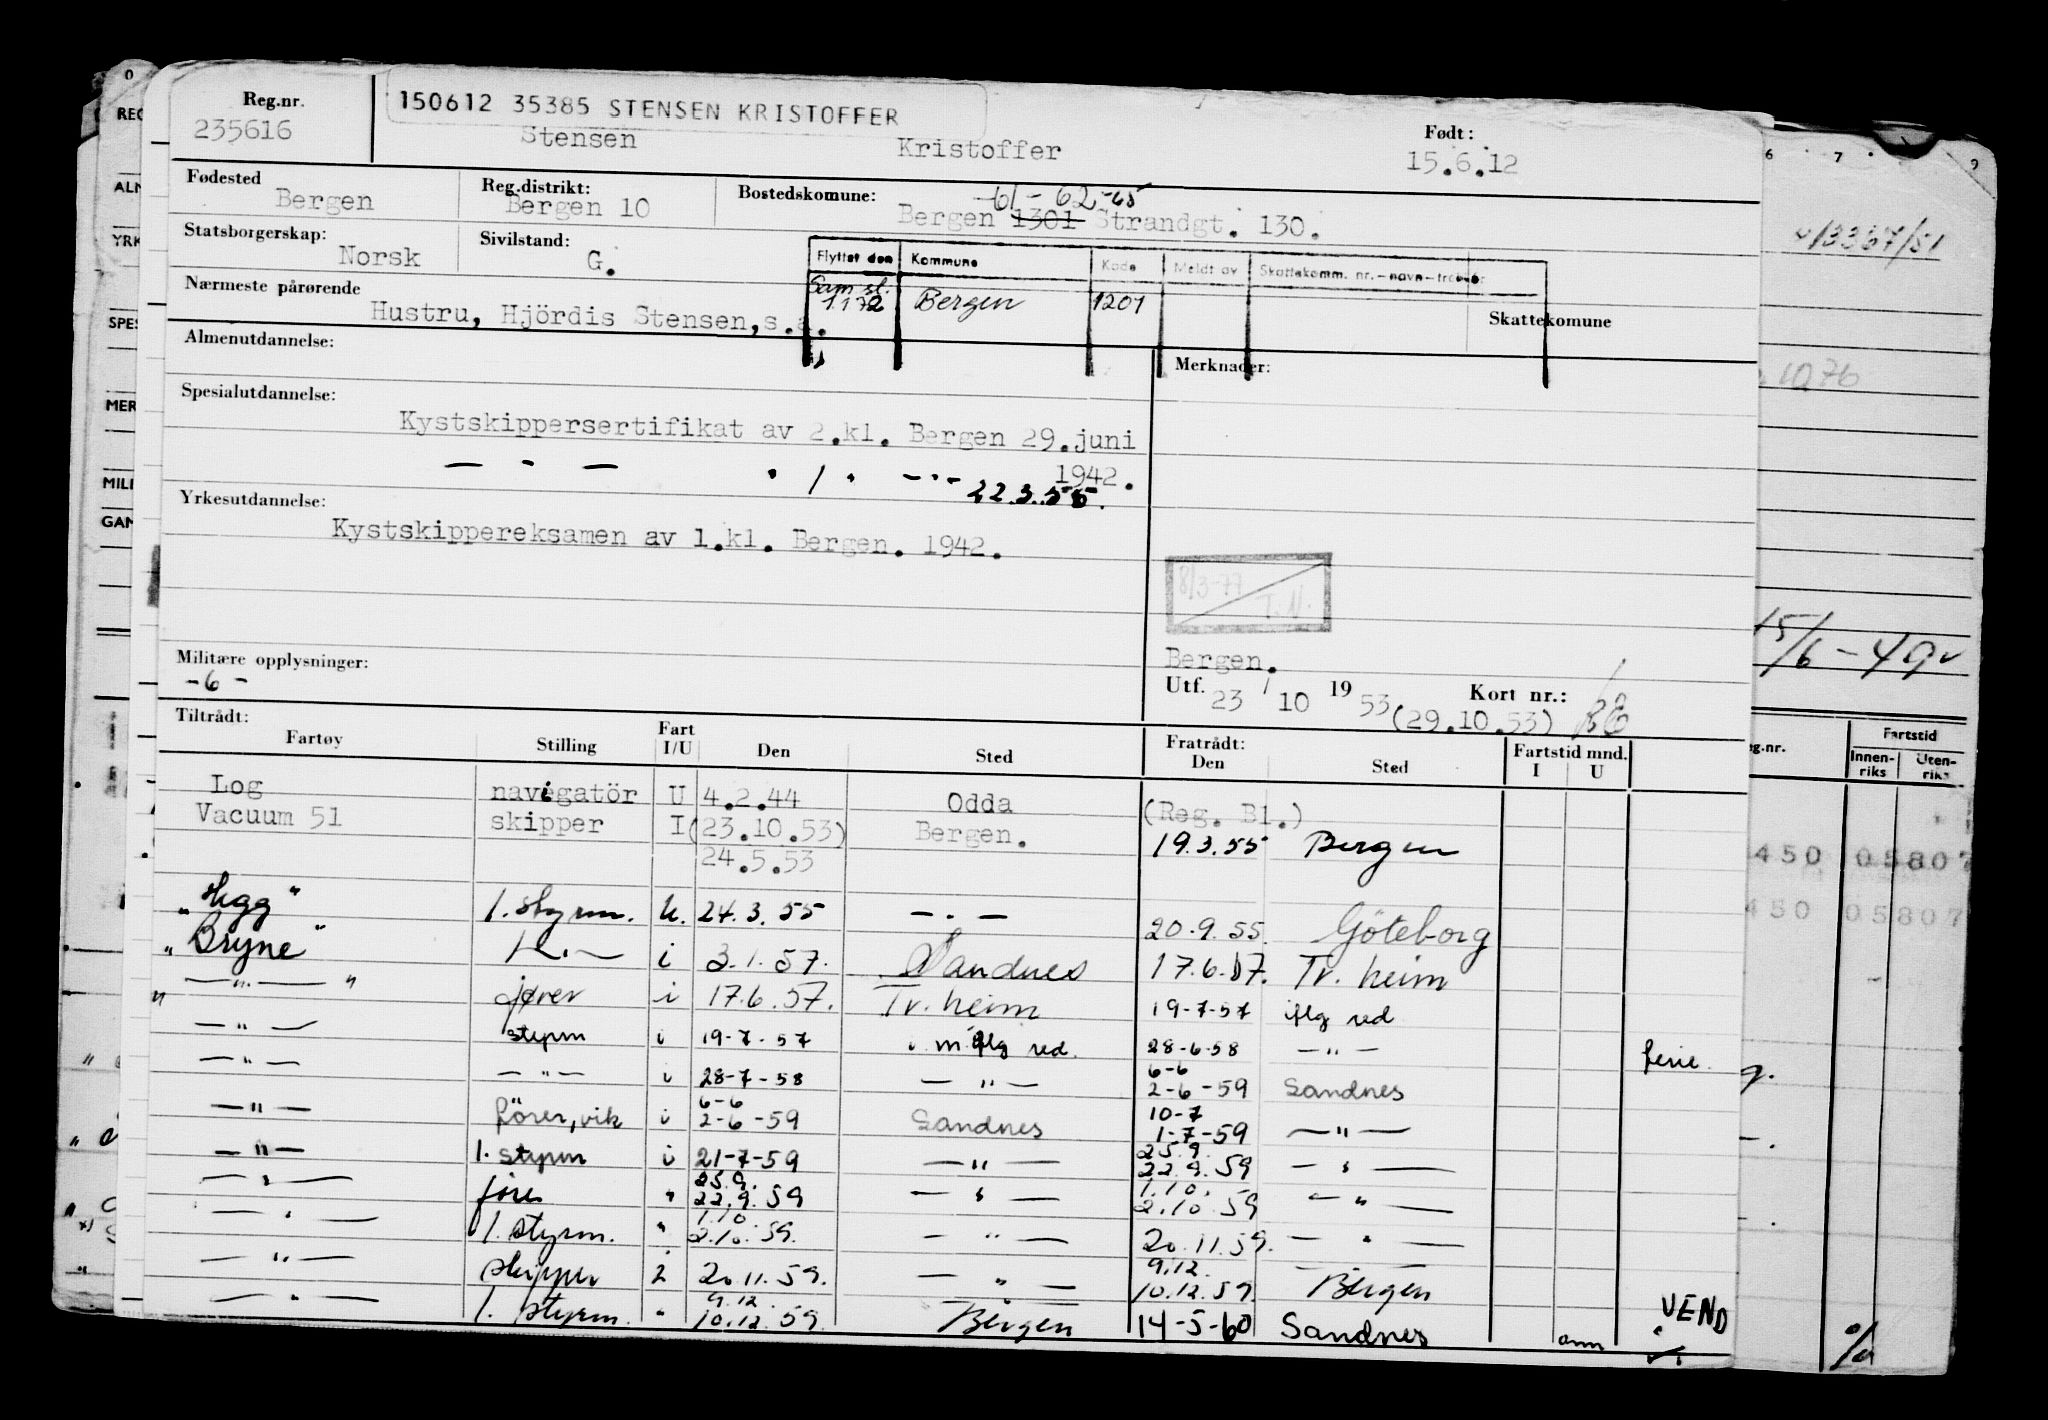 Reg.nr.
235616
150612 35385 STENSEN KRISTOFFER
Stensen Kristoffer
Født:
15.6.12
Fødested
Bergen
Reg.distrikt:
Bergen 10
Bostedskomune:
61-62-65
Bergen 1301 Strandgt. 130.
Statsborgerskap:
Norsk
Sivilstand:
G.
Flyttet den Kommune Kode Meldt av Skattekomm. nr.-navn-trekkpr
Sam.sl.
1.1 72 Bergen 1201
Nærmeste pårørende
Hustru, Hjördis Stensen, s.a.
Skattekomune
Almenutdannelse:
Merknader:
Spesialutdannelse:
Kystskippersertifikat av 2.kl. Bergen 29.juni
1942.
— - — " 1 " -·- 22.3.55.
Yrkesutdannelse:
Kystskippereksamen av 1.kl. Bergen. 1942.
8/3-77
T.N.
Militære opplysninger:
-6-
Bergen.
Utf. 23 / 10 19 53 (29.10.53) Kort nr.:
Tiltrådt:
Fartøy Stilling Fart I/U Den Sted Fratrådt: Den Sted Fartstid mnd. I U
Log navigatör U 4.2.44 Odda (Reg. Bl.)
Vacuum 51 skipper I (23.10.53) Bergen. 19.3.55 Bergen
24.5.53
"Hegg" 1. styrm. U. 24.3.55 — · — 20.9.55. Göteborg
"Bryne" — · — i 3.1.57. Sandnes 17.6.57. Tr.heim
" — " — " fører i 17.6.57. Tr.heim 19-7-57 iflg red
— " — styrm i 19-7-57 iflg red. 28-6-58 — " — ferie.
— " — — " — i 28-7-58 — " — 6-6 2-6-59 Sandnes
— " — förer, vik i 6-6 2-6-59 Sandnes 10-7 1-7-59 — " —
— " — 1. styrm i 21-7-59 — " — 25.9. 22.9.59 — " —
— " — fører " 25.9. 22.9.59 — " — 1.10. 2.10.59 — " —
— " — 1. styrm. " 1.10 2.10.59. — " — 20.11.59. — " —
— " — skipper i 20.11.59. — " — 9.12. 10.12.59. Bergen
— " — 1. styrm. " 9.12. 10.12.59. Bergen 14-5-60 Sandnes
ann
VEND
REG
ALM
YRK
SPES
MER
MILI
GAM
6 7 9
1076
15/6-49
Fartstid
Innenriks Utenriks
450 05807
450 05807